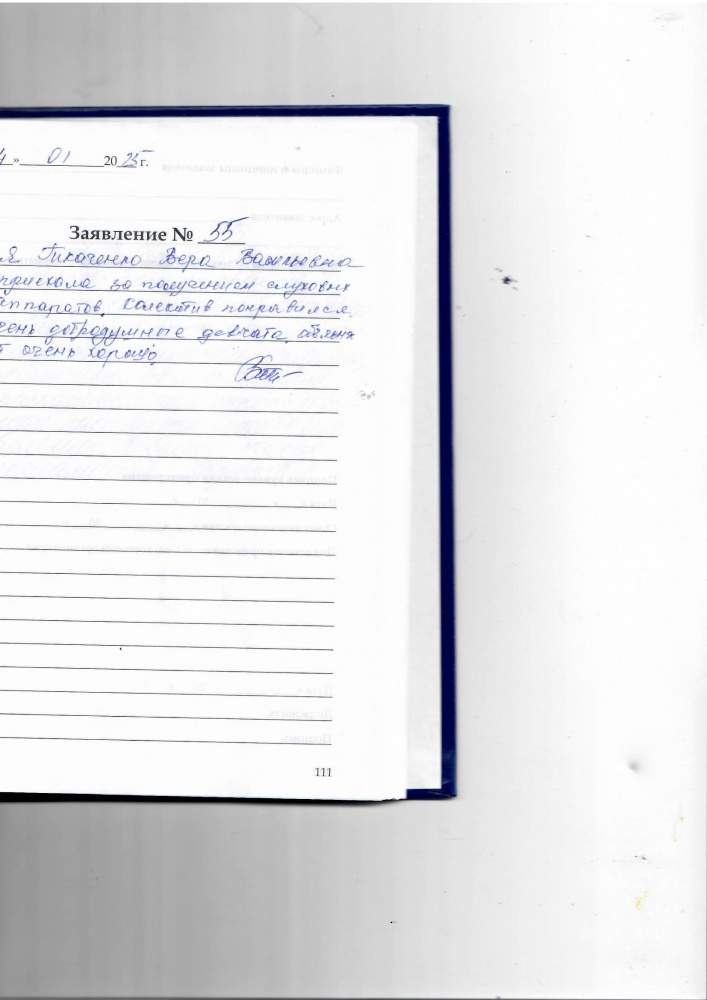 » 01 2025 г.
Заявление № 55
Я Ткаченко Вера Васильевна
приехала за получением слуховых
аппаратов. Колектив понравился.
чень добродушные девчата,
т очень хорошо
111